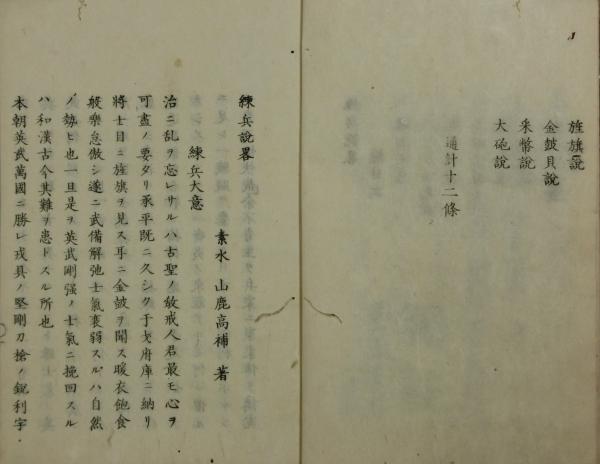 旌旗説
金皷貝説
釆幣説
大砲説
通計十二條
練兵説畧
素水 山鹿高補 著
練兵大意
治ニ乱ヲ忘レサルハ古聖ノ敎戒人君最モ心ヲ
可盡ノ要タリ承平既ニ久シク干戈府庫ニ納リ
將士目ニ旌旗ヲ見ス耳ニ金皷ヲ聞ス暖衣飽食
般樂怠傲シ遂ニ武備解弛士氣衰弱スルハ自然
ノ勢ヒ也一旦是ヲ英武剛强ノ士氣ニ挽回スル
ハ和漢古今其難ヲ患トスル所也
本朝英武萬國ニ勝レ戎具ノ堅剛刀槍ノ鋭利宇